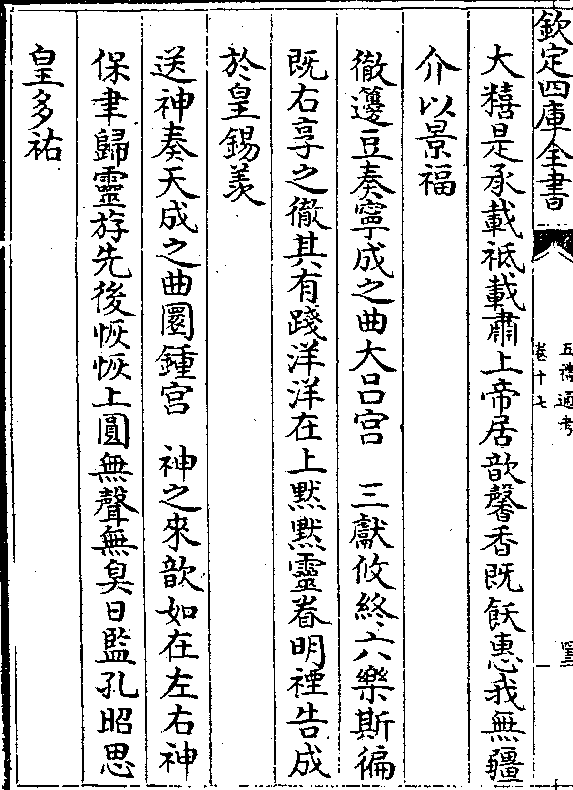 欽定四庫全書
五禮通考
卷十七
大糦是承載祗載肅上帝居歆馨香既飫惠我無疆
介以景福
徹籩豆奏寧成之曲大吕宫　三獻攸終六樂斯徧
既右享之徹其有踐洋洋在上黙黙靈眷明禋告成
於皇錫羨
送神奏天成之曲圜鍾宫　神之來歆如在左右神
保聿歸靈斿先後恢恢上圓無聲無臭日監孔昭思
皇多祐